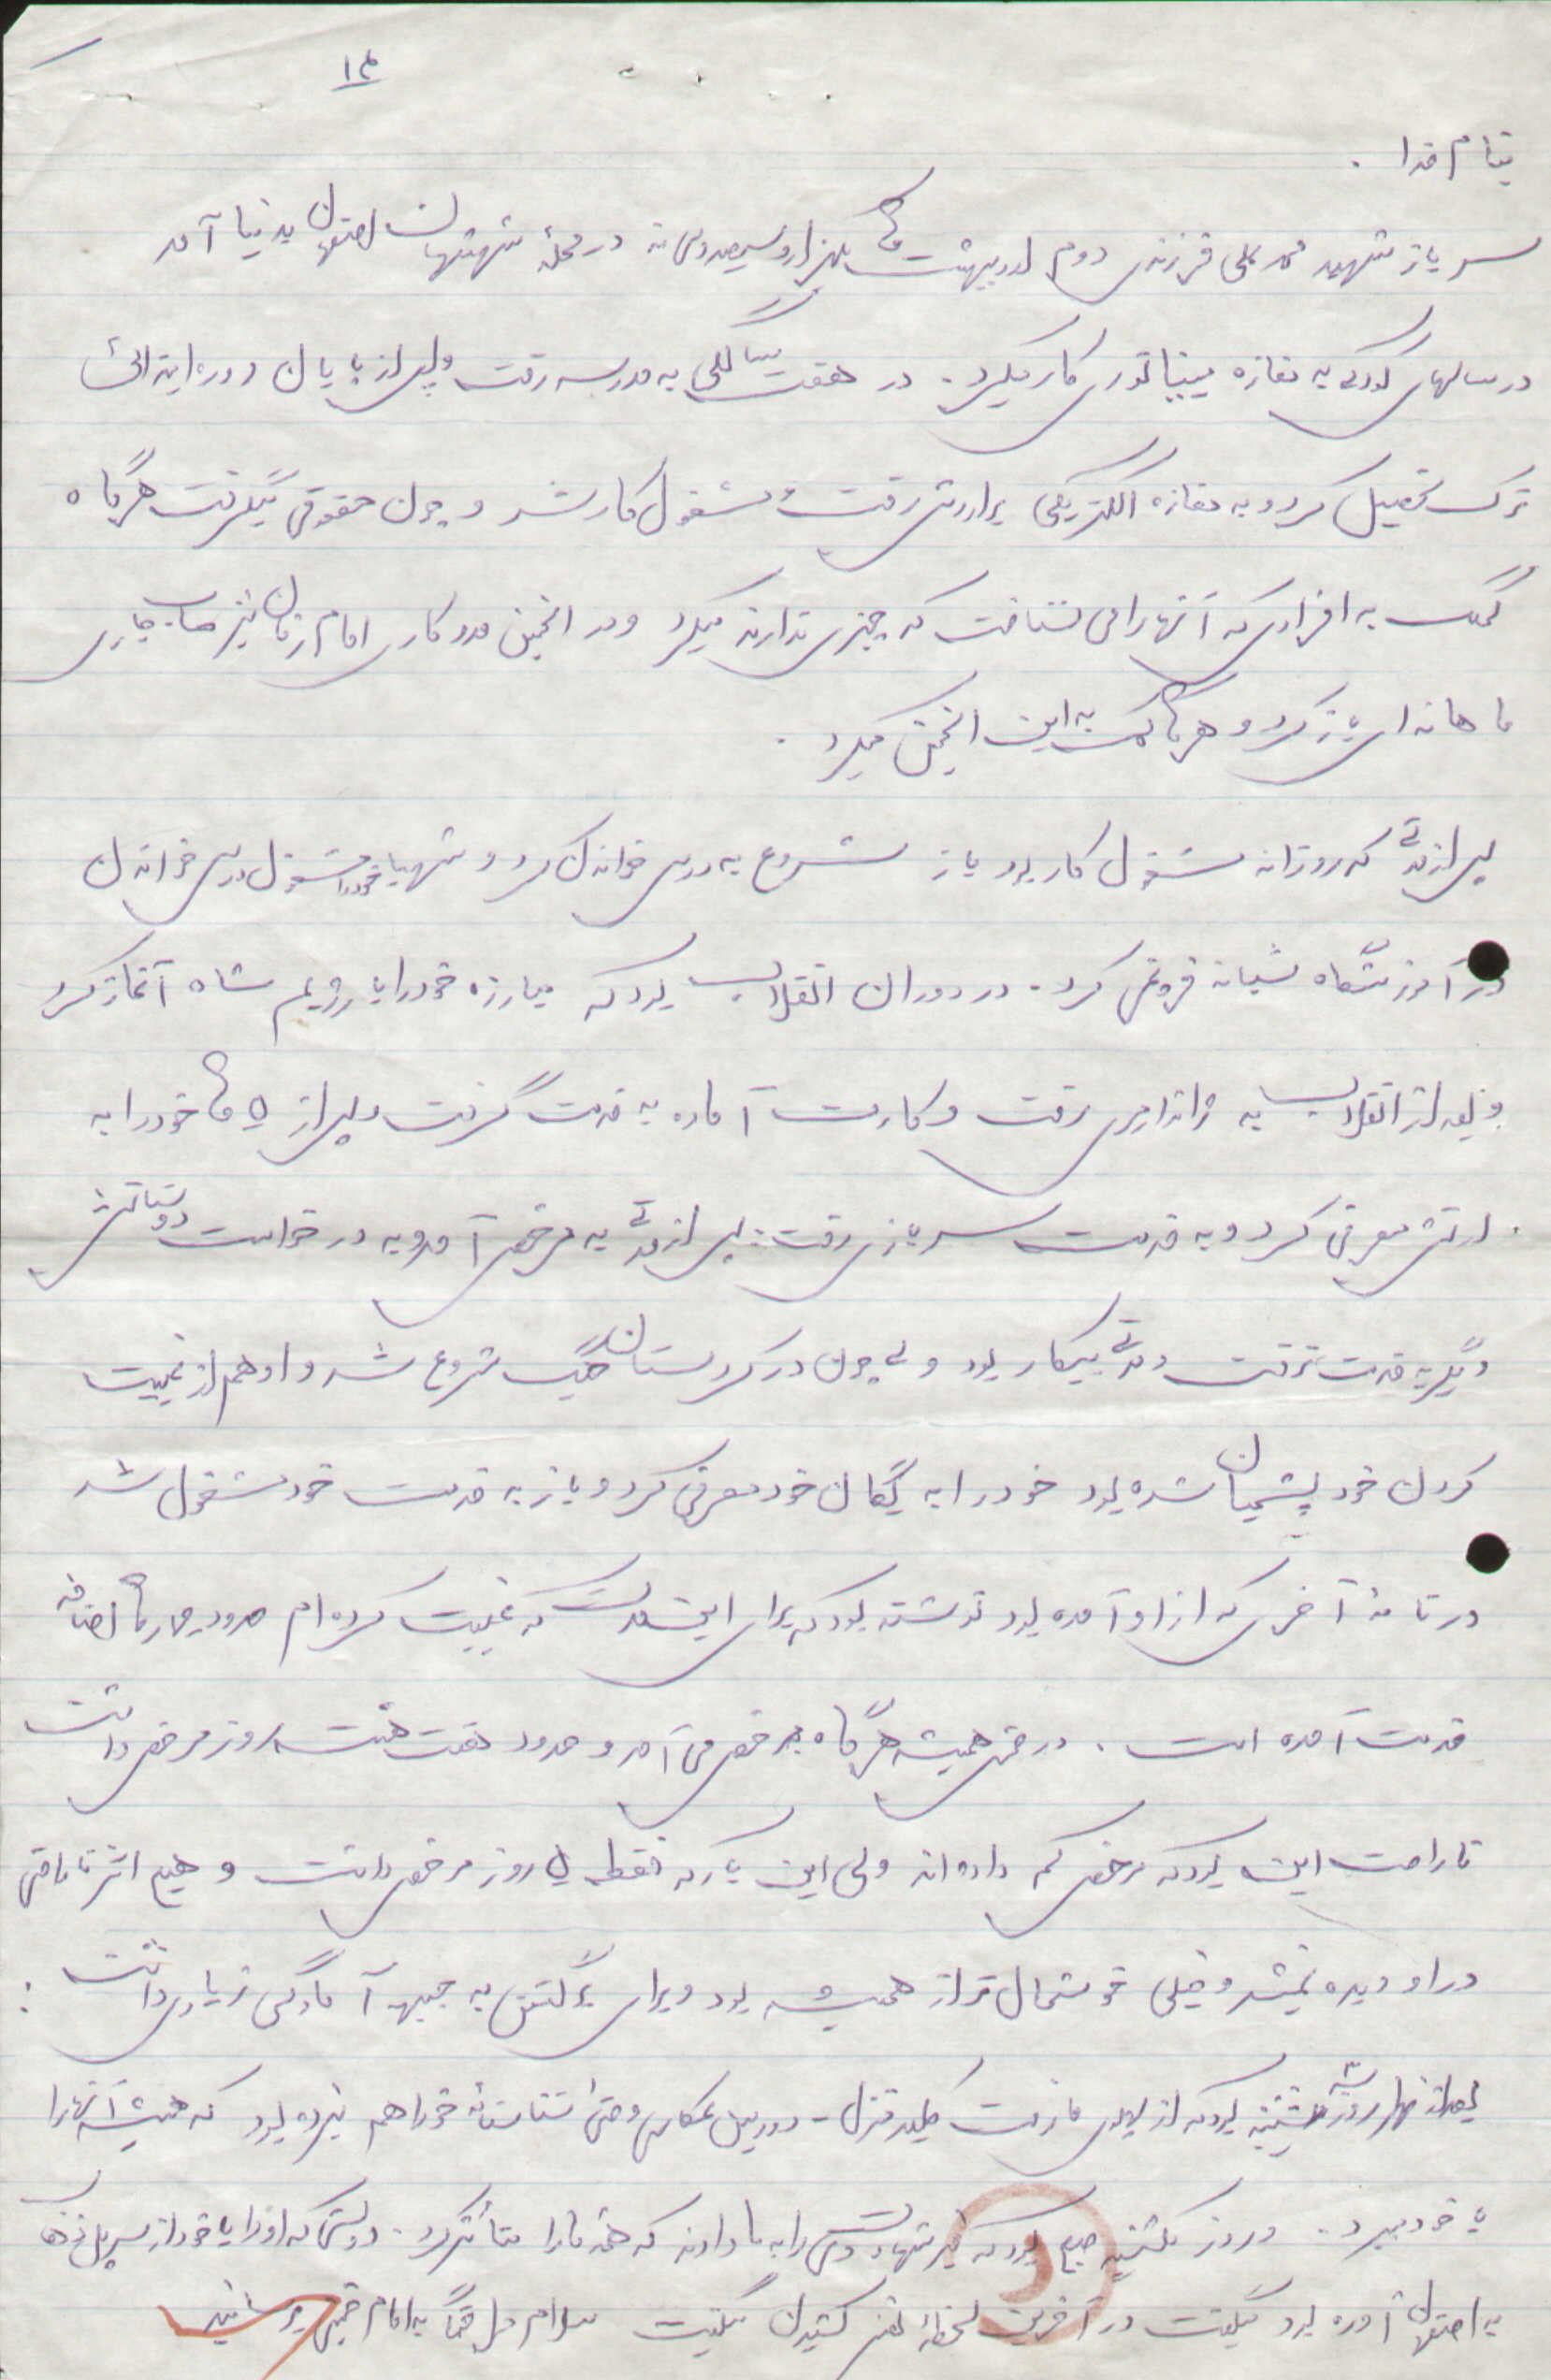 ۱۴
بنام خدا .
سرباز شهید محمد علی فرزندی دوم اردیبهشت ماه یکهزار و سیصد و سی نه در محلهٔ شهشهان اصفهان بدنیا آمد
در سالهای کودکی به مغازه مینیاتوری کار میکرد . در هفت سالگی به مدرسه رفت و پس از پایان دوره ابتدائی
ترک تحصیل کرد و به مغازه الکتریکی برادرش رفت و مشغول کار شد و چون حقوقی میگرفت هرگاه
کمک به افرادی که آنها را می شناخت که چیزی ندارند میکرد و در انجمن مددکاری امام زمان نیز حساب جاری
ماهانه ای باز کرد و هر ماه کمک به این انجمن میکرد .
پس از مدتی که روزانه مشغول کار بود باز شروع به درس خواندن کرد و شبها خود را مشغول درس خواندن
در آموزشگاه شبانه فروغی کرد . در دوران انقلاب بود که مبارزه خود را با رژیم شاه آغاز کرد
و بعد از انقلاب به ژاندارمری رفت و کارت آماده به خدمت گرفت و پس از ۵ ماه خود را به
ارتش معرفی کرد و به خدمت سربازی رفت . پس از مدتی به مرخصی آمد و به درخواست دوستانش
دیگر به خدمت نرفت و مدتی بیکار بود ولی چون در کردستان جنگ شروع شد و او هم از غیبت
کردن خود پشیمان شده بود خود را به یگان خود معرفی کرد و باز به خدمت خود مشغول شد
در نامهٔ آخری که از او آمده بود نوشته بود که برای این مدت که غیبت کرده ام حدود چهار ماه اضافه
خدمت آمده است . در ضمن همیشه هرگاه به مرخصی می آمد و حدود هفت هشت روز مرخصی داشت
ناراحت این بود که مرخصی کم داده اند ولی این بار که فقط ۵ روز مرخصی داشت و هیچ اثر ناراحتی
در او دیده نمیشد و خیلی خوشحال تر از همیشه بود و برای برگشتن به جبهه آمادگی زیادی داشت .
بعد از ظهر روز سه شنبه بود که از پیش ما رفت کلید منزل - دوربین عکاسی و حتی شناسنامهٔ خود را هم نبرده بود که همیشه آنها را
با خود میبرد . و روز یکشنبه صبح بود که خبر شهادتش را به ما دادند که همه ما را متأثر کرد . دوستش که او را با خود از سرپل ذهاب
به اصفهان آورده بود میگفت در آخرین لحظهٔ نفس کشیدن میگفت سلام مرا حتماً به امام خمینی برسانید